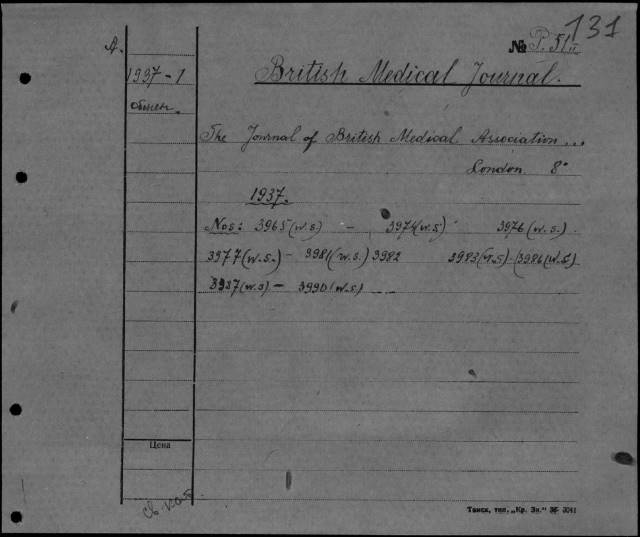 131
A.
№ P. 51 II
1937-1
British Medical Journal.
обмен.
The Journal of British Medical Association...
London 8°
1937.
Nos: 3965 (w.s.) - 3974 (w.s) 3976 (w.s.)
3977 (w.s.) - 3981 (w.s.) 3982 3983 (w.s) - 3986 (w.s)
3987 (w.s) - 3990 (w.s)
Цена
Томск, тип. „Кр. Зн."